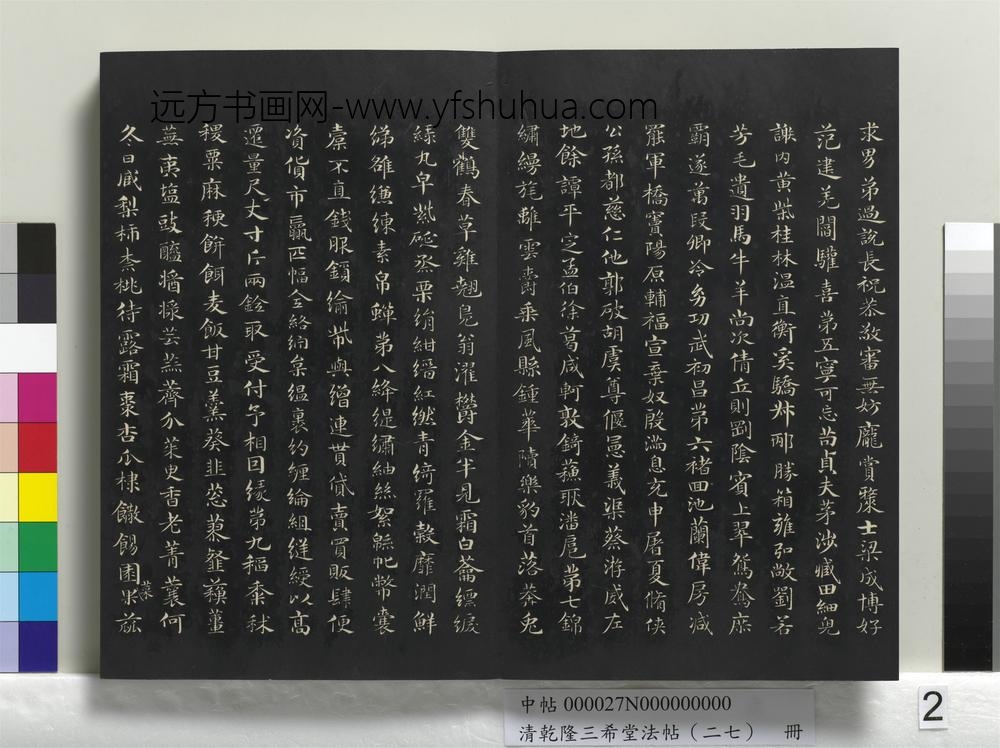 远方书画网-www.yfshuhua.com
求男弟過說長祝恭敬審毋妨龐賞贛士梁成博好
范建羌閻驩喜第五寧可忘苟貞夫茅涉臧田細兒
謝內黃柴桂林溫直衡奚驕叔邴勝箱雍弘敞劉若
芳毛遺羽馬牛羊尚次倩丘則劉陰賓上翠鴛鴦庶
霸遂萬段卿泠幼功武初昌第六褚回池蘭偉房減
羅軍橋竇陽原輔福宣棄奴殷滿息充申屠夏脩俠
公孫都慈仁他郭破胡虞尊偃憲義渠蔡游威左
地餘譚平定孟伯徐葛咸軻敦錡蘇耿潘扈第七錦
繡縵旄離雲爵乘風縣鍾華隤樂豹首落莽兔
雙鶴春草雞翹鳧翁濯鬱金半見霜白䔥縹綟
綠丸皁紫硟烝栗絹紺縉紅繎青綺羅縠靡潤鮮
綈雒縑練素帛蟬第八絳緹繡紬絲絮緜㠲幣囊
橐不直錢服鎖緰幋與繒連貰貸賣買販肆便
資貨市贏匹幅全絡紵枲縕裹約纏綸組縫綬以高
遷量尺丈寸斤兩銓取受付予相因緣第九稻黍秫
稷粟麻秔餅餌麦飯甘豆羹葵韭蔥蓼韰蘇薑
蕪荑塩豉醯醬漿芸蒜薺介茱臾香老菁蘘何
冬日臧梨柿柰桃待露霜棗杏瓜棣饊餳園菜果蓏
中帖 000027N000000000
清乾隆三希堂法帖（二七） 冊
2